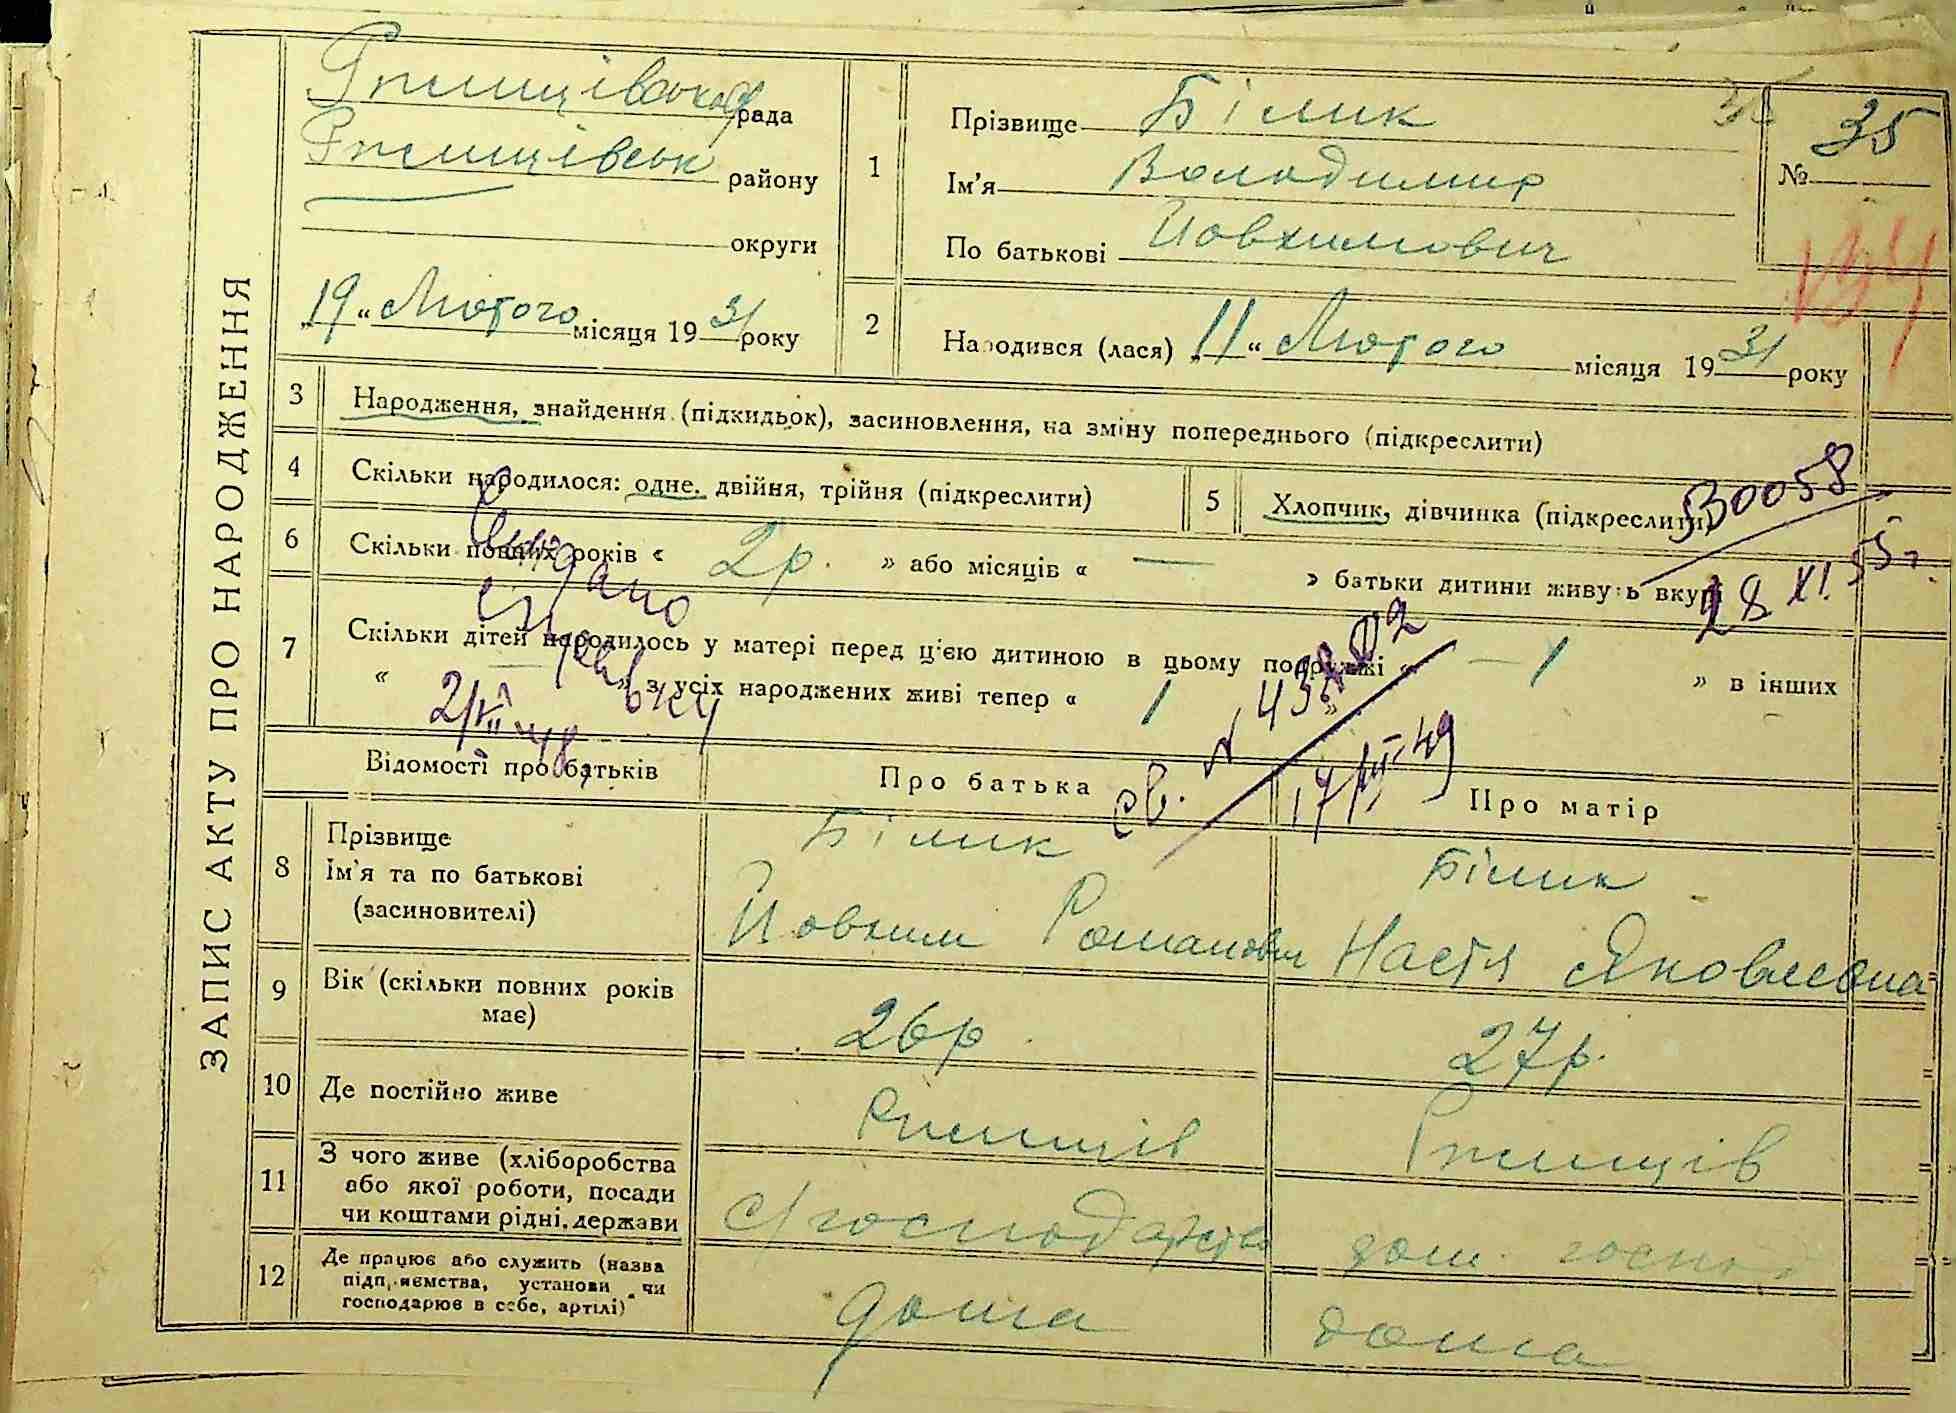 ЗАПИС АКТУ ПРО НАРОДЖЕННЯ
Ржищівська рада
Ржищівськ району
округи
„19“ Лютого місяця 1931 року
1
Прізвище Білик
Ім'я Володимир
По батькові Йовхимович
35
№ 35
134
2
Народився (лася) „11“ Лютого місяця 1931 року
3 Народження, знайдення (підкидьок), засиновлення, на зміну попереднього (підкреслити)
4 Скільки народилося: одне, двійня, трійня (підкреслити)
5 Хлопчик, дівчинка (підкреслити)
30058
28 XI 55 г.
6 Скільки повних років « 2 р. » або місяців « — » батьки дитини живуть вкупі
7 Скільки дітей народилось у матері перед цією дитиною в цьому подружжі « — 1 » в інших
« — » з усіх народжених живі тепер « 1 »
Видано
справку
2/XII 48
св. N
17/III-49
Відомості про батьків
Про батька
Про матір
8 Прізвище
Ім'я та по батькові
(засиновителі)
Білик
Йовхим Романович
Білик
Настя Яковлевна
9 Вік (скільки повних років має)
26 р.
27 р.
10 Де постійно живе
Ржищів
Ржищів
11 З чого живе (хліборобства
або якої роботи, посади
чи коштами рідні, держави
с/господарство
дом. госпо
12 Де працює або служить (назва
підприємства, установи чи
господарює в себе, артілі)
дома
дома